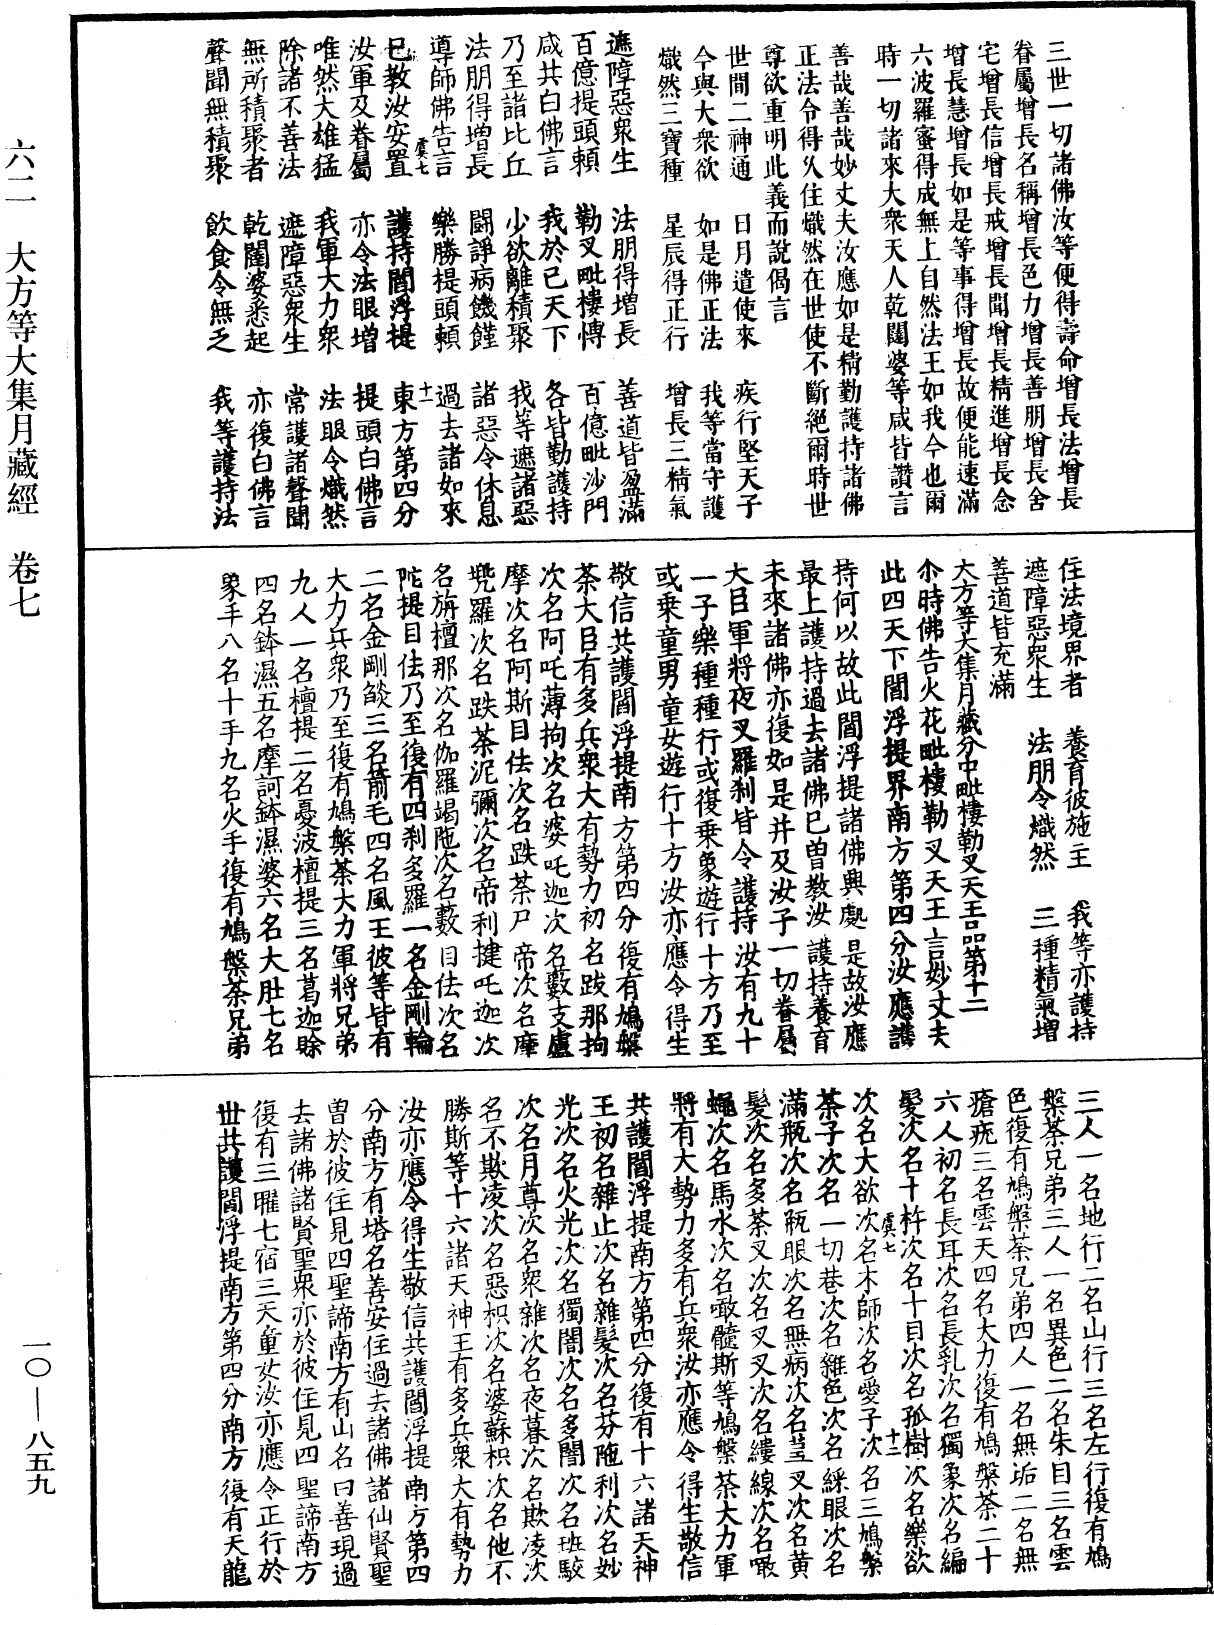 三世一切諸佛汝等便得壽命增長法增長
眷屬增長名稱增長色力增長善朋增長舍
宅增長信增長戒增長聞增長精進增長念
增長慧增長如是等事得增長故便能速滿
六波羅蜜得成無上自然法王如我今也爾
時一切諸來大衆天人乾闥婆等咸皆讚言
善哉善哉妙丈夫汝應如是精勤護持諸佛
正法令得久住熾然在世使不斷絕爾時世
尊欲重明此義而說偈言
世間二神通　日月遣使來　疾行堅天子
今與大衆欲　如是佛正法　我等當守護
熾然三寶種　星辰得正行　增長三精氣
遮障惡衆生　法朋得增長　善道皆盈滿
百億提頭賴　勒叉毗樓博　百億毗沙門
咸共白佛言　我於巳天下　各皆勤護持
乃至諸比丘　少欲離積聚　我等遮諸惡
法朋得增長　鬪諍病饑饉　諸惡令休息
導師佛告言　樂勝提頭賴　過去諸如來
虞七　十一
巳教汝安置　護持閻浮提　東方第四分
汝軍及眷屬　亦令法眼增　提頭白佛言
唯然大雄猛　我軍大力衆　法眼令熾然
除諸不善法　遮障惡衆生　常護諸聲聞
無所積聚者　乾闥婆悉起　亦復白佛言
聲聞無積聚　飲食令無乏　我等護持法
住法境界者　養育彼施主　我等亦護持
遮障惡衆生　法朋令熾然　三種精氣增
善道皆充滿
大方等大集月藏分中毗樓勒叉天王品第十二
尒時佛告火花毗樓勒叉天王言妙丈夫
此四天下閻浮提界南方第四分汝應護
持何以故此閻浮提諸佛興處是故汝應
最上護持過去諸佛巳曾教汝護持養育
未來諸佛亦復如是并及汝子一切眷屬
大臣軍將夜叉羅刹皆令護持汝有九十
一子樂種種行或復乘象遊行十方乃至
或乘童男童女遊行十方汝亦應令得生
敬信共護閻浮提南方第四分復有鳩槃
荼大臣有多兵衆大有勢力初名跋那拘
次名阿吒薄拘次名婆吒迦次名藪支盧
摩次名阿斯目佉次名跌荼尸帝次名摩
兠羅次名跌荼泥彌次名帝利揵吒迦次
名旃檀那次名伽羅竭陁次名藪目佉次名
陀提目佉乃至復有四刹多羅一名金剛輪
二名金剛燄三名箭毛四名風王彼等皆有
大力兵衆乃至復有鳩槃荼大力軍將兄弟
九人一名檀提二名憂波檀提三名葛迦賒
四名鉢濕五名摩訶鉢濕婆六名大肚七名
象手八名十手九名火手復有鳩槃荼兄弟
三人一名地行二名山行三名左行復有鳩
槃荼兄弟三人一名異色二名朱目三名雲
色復有鳩槃荼兄弟四人一名無垢二名無
瘡疣三名雲天四名大力復有鳩槃荼二十
六人初名長耳次名長乳次名獨象次名編
髮次名十杵次名十目次名孤樹次名樂欲
虞七　十二
次名大欲次名木師次名愛子次名三鳩槃
荼子次名一切巷次名雜色次名綵眼次名
滿瓶次名瓶眼次名無病次名莖叉次名黄
髮次名多荼叉次名叉叉次名縷線次名噉
蠅次名馬水次名噉髓斯等鳩槃荼大力軍
將有大勢力多有兵衆汝亦應令得生敬信
共護閻浮提南方第四分復有十六諸天神
王初名雜止次名雜髮次名芬陁利次名妙
光次名火光次名獨闇次名多闇次名班駮
次名月尊次名衆雜次名夜暮次名欺凌次
名不欺凌次名惡枳次名婆蘇枳次名他不
勝斯等十六諸天神王有多兵衆大有勢力
汝亦應令得生敬信共護閻浮提南方第四
分南方有塔名善安住過去諸佛諸仙賢聖
曾於彼住見四聖諦南方有山名曰善現過
去諸佛諸賢聖衆亦於彼住見四聖諦南方
復有三曜七宿三天童女汝亦應令正行於
丗共護閻浮提南方第四分南方復有天龍
六二　大方等大集月藏經　卷七
一〇—八五九